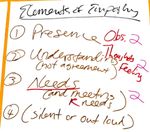 Elements of Empathy
① Presence Obs. 2
② Understanding Thoughts 2
(not agreement) Feelings
③ Needs 2
(and meeting
needs)
④ (silent or out loud)